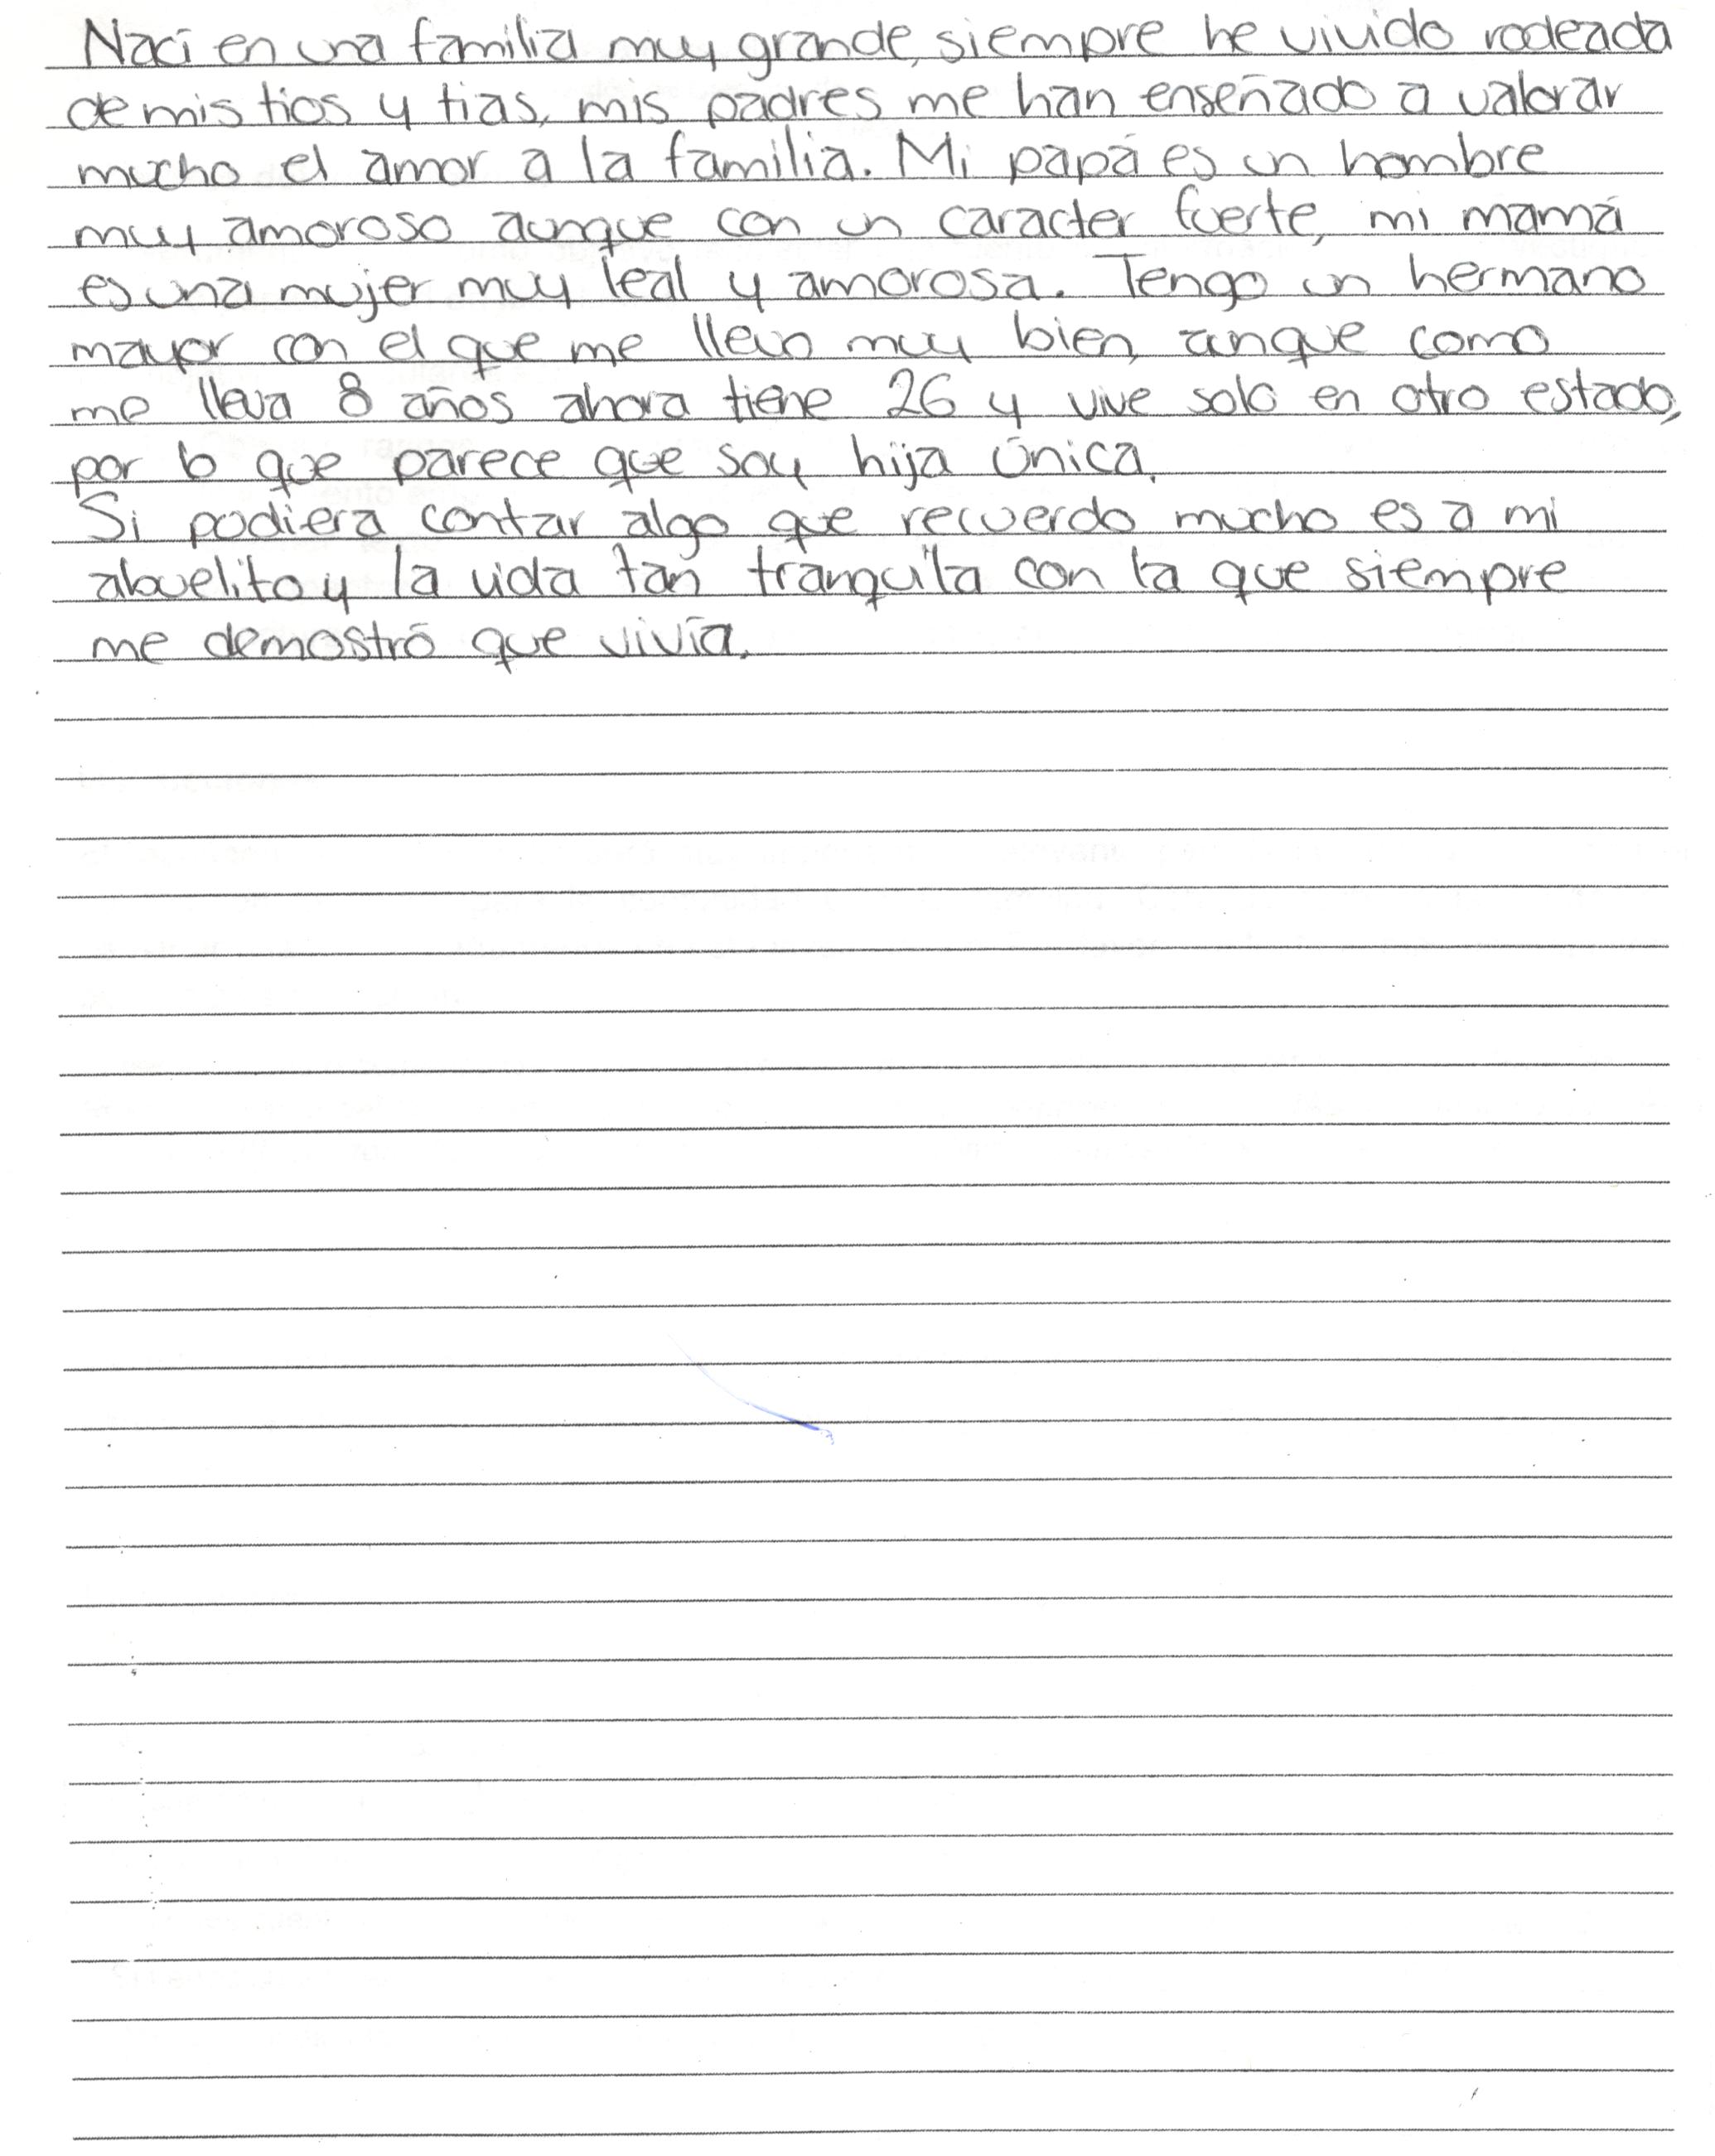 Nací en una familia muy grande, siempre he vivido rodeada
de mis tios y tias, mis padres me han enseñado a valorar
mucho el amor a la familia. Mi papá es un hombre
muy amoroso aunque con un caracter fuerte, mi mamá
es una mujer muy leal y amorosa. Tengo un hermano
mayor con el que me llevo muy bien, aunque como
me lleva 8 años ahora tiene 26 y vive solo en otro estado,
por lo que parece que soy hija única.
Si pudiera contar algo que recuerdo mucho es a mi
abuelito y la vida tan tranquila con la que siempre
me demostró que vivía.